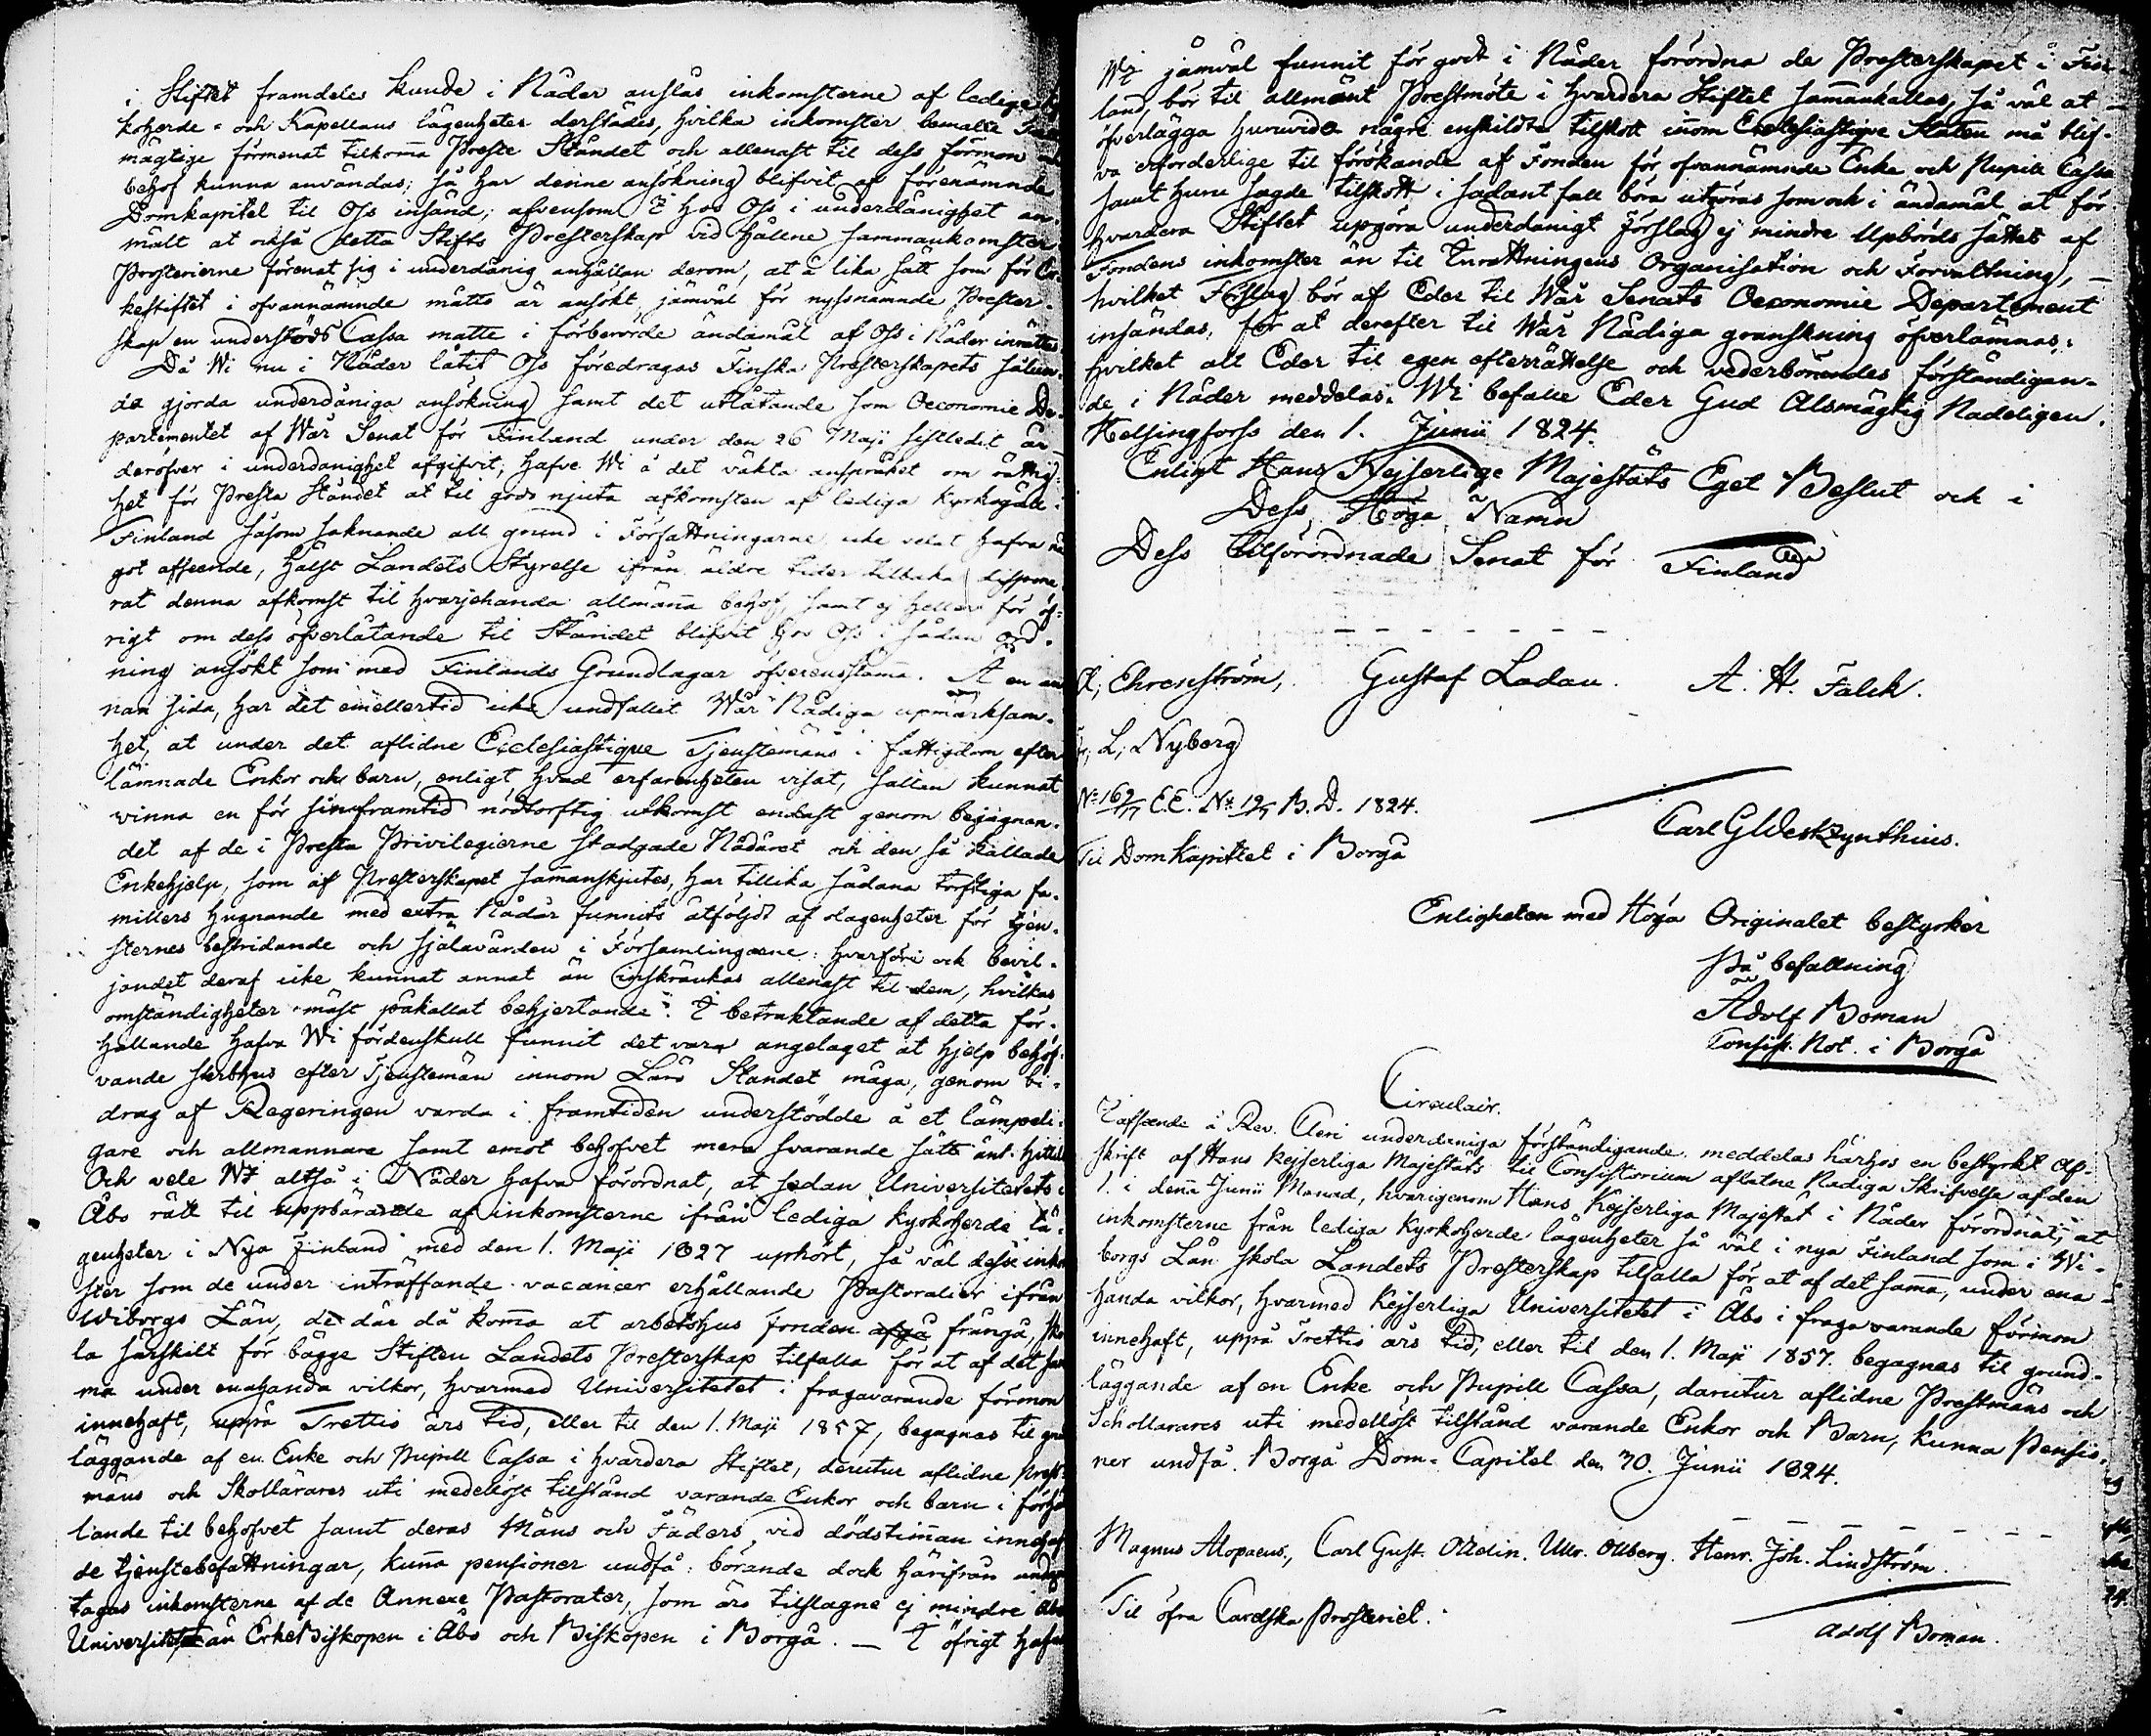 i Stiftet framdeles kunde i Nåder anslås inkomsterne af ledige
koherde- och Kapellans lägenheter derstädes, hvilka inkomster bemälte
mägtige förmenat tilkom̄a Preste Ståndet och allenast til dess förmon
behof kunna användas; så har denne ansökning blifvit af förenämnde
Domkapitel til Oss insänd; äfvensom I hos Oss i underdånighet an-
mält at också detta Stifts Presterskap vid hållne sammankomster
Prosterierne förenat sig i underdånig anhållan derom, at å lika sätt som för Er-
kestiftet i ofvannämnde måtto är ansökt, jämväl för nyssnämnde Prester-
skap en understöds Cassa måtte i förberörde ändamål af Oss i Nåder inrättas.
Då Wi nu i Nåder låtit Oss föredragas Finska Presterskapets sålun-
da gjorda underdåniga ansökning samt det utlåtande som Oeconomie De-
partementet af Wår Senat för Finland under den 26 Maji sistledit år
deröfver i underdånighet afgifvit; Hafve Wi å det väkta anspråket om rättig-
het för Presta Ståndet at til godo njuta afkomsten af lediga Kyrkogäll i
Finland såsom saknande all grund i Författningarne icke velat hafva nå
got afseende, hälst Landets Styrelse ifrån äldre tider tilbaka dispone-
rat denna afkomst til hvarjehanda allmäña behof, samt ej heller för öf-
rigt om dess öfverlåtande til Ståndet blifvit hos Oss i sådan ord-
ning ansökt som med Finlands Grundlagar öfverensstäm̄a. Å en an
nan sida, har det emellertid icke undfallit Wår Nådiga upmärksam-
het, at under det aflidne Ecclesiastique Tjenstemäns i fattigdom efter
lämnade Enkor och barn, enligt hvad erfarenheten visat, sällan kunnat
vinna en för sin framtid nödtorftig utkomst endast genom begagnan-
det af de i Presta Privilegierne stadgade Nådåret och den så kallade
Enkehjelp, som af Presterskapet sam̄anskjutes, har tillika sådana torftiga fa-
millers hugnande med extra Nådår funnits åtföljdt af olägenheter för tjen-
sternes bestridande och själavården i Församlingarne: hvarföre ock bevil-
jandet deraf icke kunnat annat än inskränkas allenast til dem, hvilkas
omständigheter mäst påkallat behjertande. I betraktande af detta för-
hållande Hafva Wi fördenskull funnit det vara angeläget at hjelp behöf-
vande sterbhus efter Tjenstemän innom Läro Ståndet måga, genom bi-
drag af Regeringen varda i framtiden understödde å et lämpeli-
gare och allmännare samt emot behofvet mera svarande sätt än
Och vele Wi altså i Nåder hafva förordnat, at sedan Universitetets i
Åbo rätt til uppbärande af inkomsterne ifrån lediga kyrkoherde lä-
genheter i Nya Finland med den 1. Maji 1827 uphört, så väl desse inkom
ster som de under inträffande vacancer erhållande Pastoralier ifrån
Wiborgs Län, de där då kom̄a at arbetshus fonden afgå frångå, sko
la särskilt för bägge Stiften Landets Presterskap tilfalla för at af det sam
ma under enahanda vilkor, hvarmed Universitetet i frågavarande förmon
innehaft, uppå Trettio års tid, eller til den 1. Maji 1857, begagnas til
läggande af en Enke och Pupill Cassa i hvardera Stiftet, derutur aflidne Prest-
mäns och Skollärares uti medellöst tilstånd varande Enkor och barn i förhå
lande til behofvet samt deras Mäns och Fäders vid dödstim̄an innehaf
de tjenstebefattningar, kuña pensioner undfå: börande dock härifrån
tagas inkomsterne af de Annexe Pastorater, som äro tilslagne ej mindre Åbo
Universitet än ErkeBiskopen i Åbo och Biskopen i Borgå. — I öfrigt Hafve
Wi jämväl funnit för godt i Nåder förordna de Presterskapet i Fin-
land bör til allmänt Prestmöte i hvardera Stiftet sam̄ankallas, så väl at
öfverlägga huruvida några enskildta tilskott iñom Ecclesiastique Staten må blif-
va erforderlige til förökande af Fonden för ofvannämnde Enke och Pupill Cassa
samt huru sagde tilskott i sådant fall böra utgöras som ock i ändamål at för
hvardera Stiftet upgöra underdånigt förslag ej mindre Upbörds sättet af
Fondens inkomster än til Inrättningens Organisation och Förvaltning, —
hvilket Förslag bör af Eder til Wår Senats Oeconomie Departement
insändas, för at derefter til Wår Nådiga granskning öfverlämnas:
hvilket alt Eder til egen efterrättelse och vederbörandes förständigan-
de i Nåder meddelas. Wi befalle Eder Gud Alsmägtig Nådeligen.
Helsingfors den 1. Junii 1824.
Enligt Hans Kejserlige Majestäts Eget Beslut och i
Dess Höga Namn
Dess tilförordnade Senat för Finland
Ehrenström, Gustaf Ladau. A. H. Falck.
L; Nyborg
No 162/17 E.E. No 12/5 B.D. 1824.
Carl G Westzynthius.
Til Domkapittel i Borgå
Enligheten med Höga Originalet bestyrker
På befallning
Adolf Boman
Consist. Not. i Borgå
Circulair.
I afseende å Rev. Cleri underdåniga förständigande meddelas härhos en bestyrkt af-
skrift af Hans Kejserliga Majestäts til Consistorium aflåtne Nådiga Skrifvelse af den
1. i deñа Junii Månad, hvarigenom Hans Kejserliga Majestät i Nåder förordnat, at
inkomsterne från lediga Kyrkoherde lägenheter så väl i nya Finland som i Wi-
borgs Län skola Landets Presterskap tilfalla för at af det sam̄a, under ena-
handa vilkor, hvarmed Kejserliga Universitetet i Åbo i fråga varande förmon
innehaft, uppå Trettio års tid, eller til den 1. Maji 1857. begagnas til grund-
läggande af en Enke och Pupill Cassa, darutur aflidne Prestmäns och
Schollärares uti medellöst tilstånd varande Enkor och Barn, kunna Pensio-
ner undfå. Borgå Dom-Capitel den 30. Junii 1824.
Magnus Alopaeus, Carl Gust. Ottelin. Ulr. Ollberg. Henr. Joh. Lindström.
Til öfra Carelska Prosteriet.
Adolf Boman.